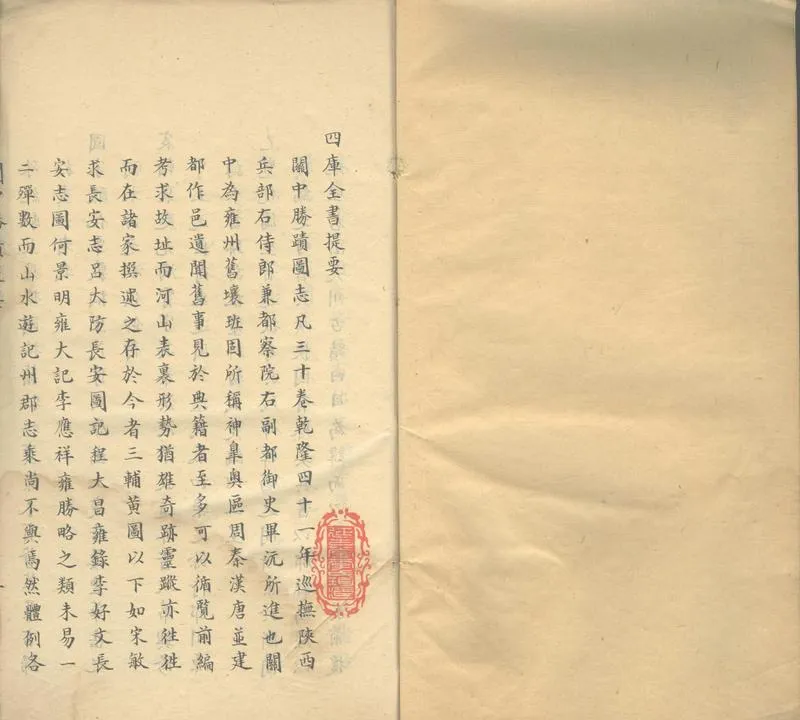 四庫全書提要
關中勝蹟圖志凡三十卷乾隆四十一年巡撫陝西
兵部右侍郎兼都察院右副都御史畢沅所進也關
中為雍州舊壤班固所稱神臯奧區周秦漢唐並建
都作邑遺聞舊事見於典籍者至多可以循覽前編
考求故址而河山表裏形勢猶雄奇跡靈蹤亦徃徃
而在諸家撰述之存於今者三輔黃圖以下如宋敏
求長安志呂大防長安圖記程大昌雍錄李好文長
安志圖何景明雍大記李應祥雍勝略之類未易一
二殫數而山水遊記州郡志乘尚不與焉然體例各